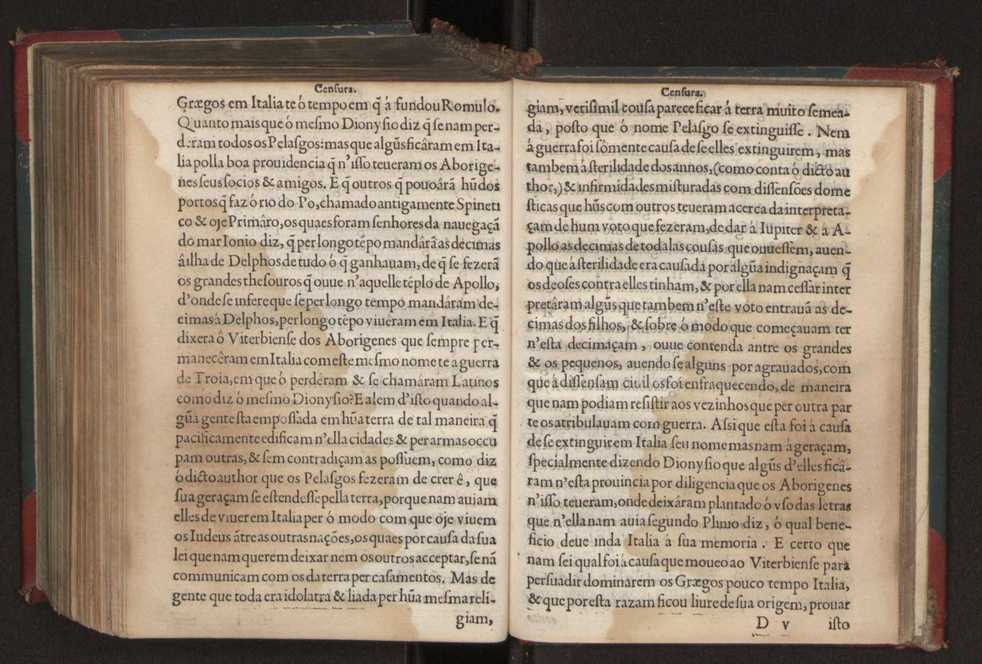 Censura.
Grægos em Italia te ó tempo em q̃ á fundou Romulo.
Quanto mais que ó mesmo Dionysio diz q̃ se nam per-
deram todos os Pelasgos: mas que algũs ficáram em Ita-
lia polla boa prouidencia q̃ n'isso teueram os Aborige-
nes seus socios & amigos. E q̃ outros q̃ pouoárã hũ dos
portos q̃ faz ó rio do Po, chamado antigamente Spineti
co & oje Primáro, os quaes foram senhores da nauegaçã
do mar Ionio diz, q̃ per longo tẽpo mandárã as decimas
â ilha de Delphos de tudo ó q̃ ganhauam, de q̃ se fezerã
os grandes thesouros q̃ ouue n'aquelle tẽplo de Apollo,
d'onde se infere que se per longo tempo mandáram de-
cimas à Delphos, per longo tẽpo viueram em Italia. E q̃
dixera ó Viterbiense dos Aborigenes que sempre per-
manecêram em Italia com este mesmo nome te a guerra
de Troia, em que ó perdêram & se chamáram Latinos
como diz ó mesmo Dionysio? E alem d'isto quando al-
gũa gente sta empossada em hũa terra de tal maneira q̃
pacificamente edificam n'ella cidades & per armas occu
pam outras, & sem contradiçam as possuem, como diz
ó dicto author que os Pelasgos fezeram de crer ê, que
sua geraçam se estendesse pella terra, porque nam auiam
elles de viuer em Italia per ó modo com que oje viuem
os Iudeus ãtre as outras nações, os quaes por causa da sua
lei que nam querem deixar nem os outros acceptar, se nã
communicam com os da terra per casamentos. Mas de
gente que toda era idolatra & liada per hũa mesma reli-
giam,
Censura.
giam, verisimil cousa parece ficar á terra muito semea-
da, posto que ó nome Pelasgo se extinguisse. Nem
á guerra foi sòmente causa de se elles extinguirem, mas
tambem á sterilidade dos annos, (como conta ó dicto au
thor,) & infirmidades misturadas com dissensões dome
sticas que hũs com outros teueram acerca da interpreta-
çam de hum voto que fezeram, de dar á Iupiter & á A-
pollo as decimas de todalas cousas que ouuessem, auen-
do que á sterilidade era causada por algũa indignaçam q̃
os deoses contra elles tinham, & por ella nam cessar inter
pretáram algũs que tambem n'este voto entrauã as de-
cimas dos filhos, & sobre ó modo que começauam ter
n'esta decimaçam, ouue contenda antre os grandes
& os pequenos, auendo se alguns por agrauados, com
que á dissensam ciuil os foi enfraquecendo, de maneira
que nam podiam resistir aos vezinhos que per outra par
te os atribulauam com guerra. Assi que esta foi á causa
de se extinguir em Italia seu nome mas nam á geraçam,
specialmente dizendo Dionysio que algũs d'elles ficá-
ram n'esta prouincia por diligencia que os Aborigenes
n'isso teueram, onde deixáram plantado ó vso das letras
que n'ella nam auia segundo Plinio diz, ó qual bene-
ficio deue inda Italia á sua memoria. E certo que
nam sei qual foi á causa que moueo ao Viterbiense para
persuadir dominarem os Grægos pouco tempo Italia,
& que por esta razam ficou liure de sua origem, prouar
D v isto